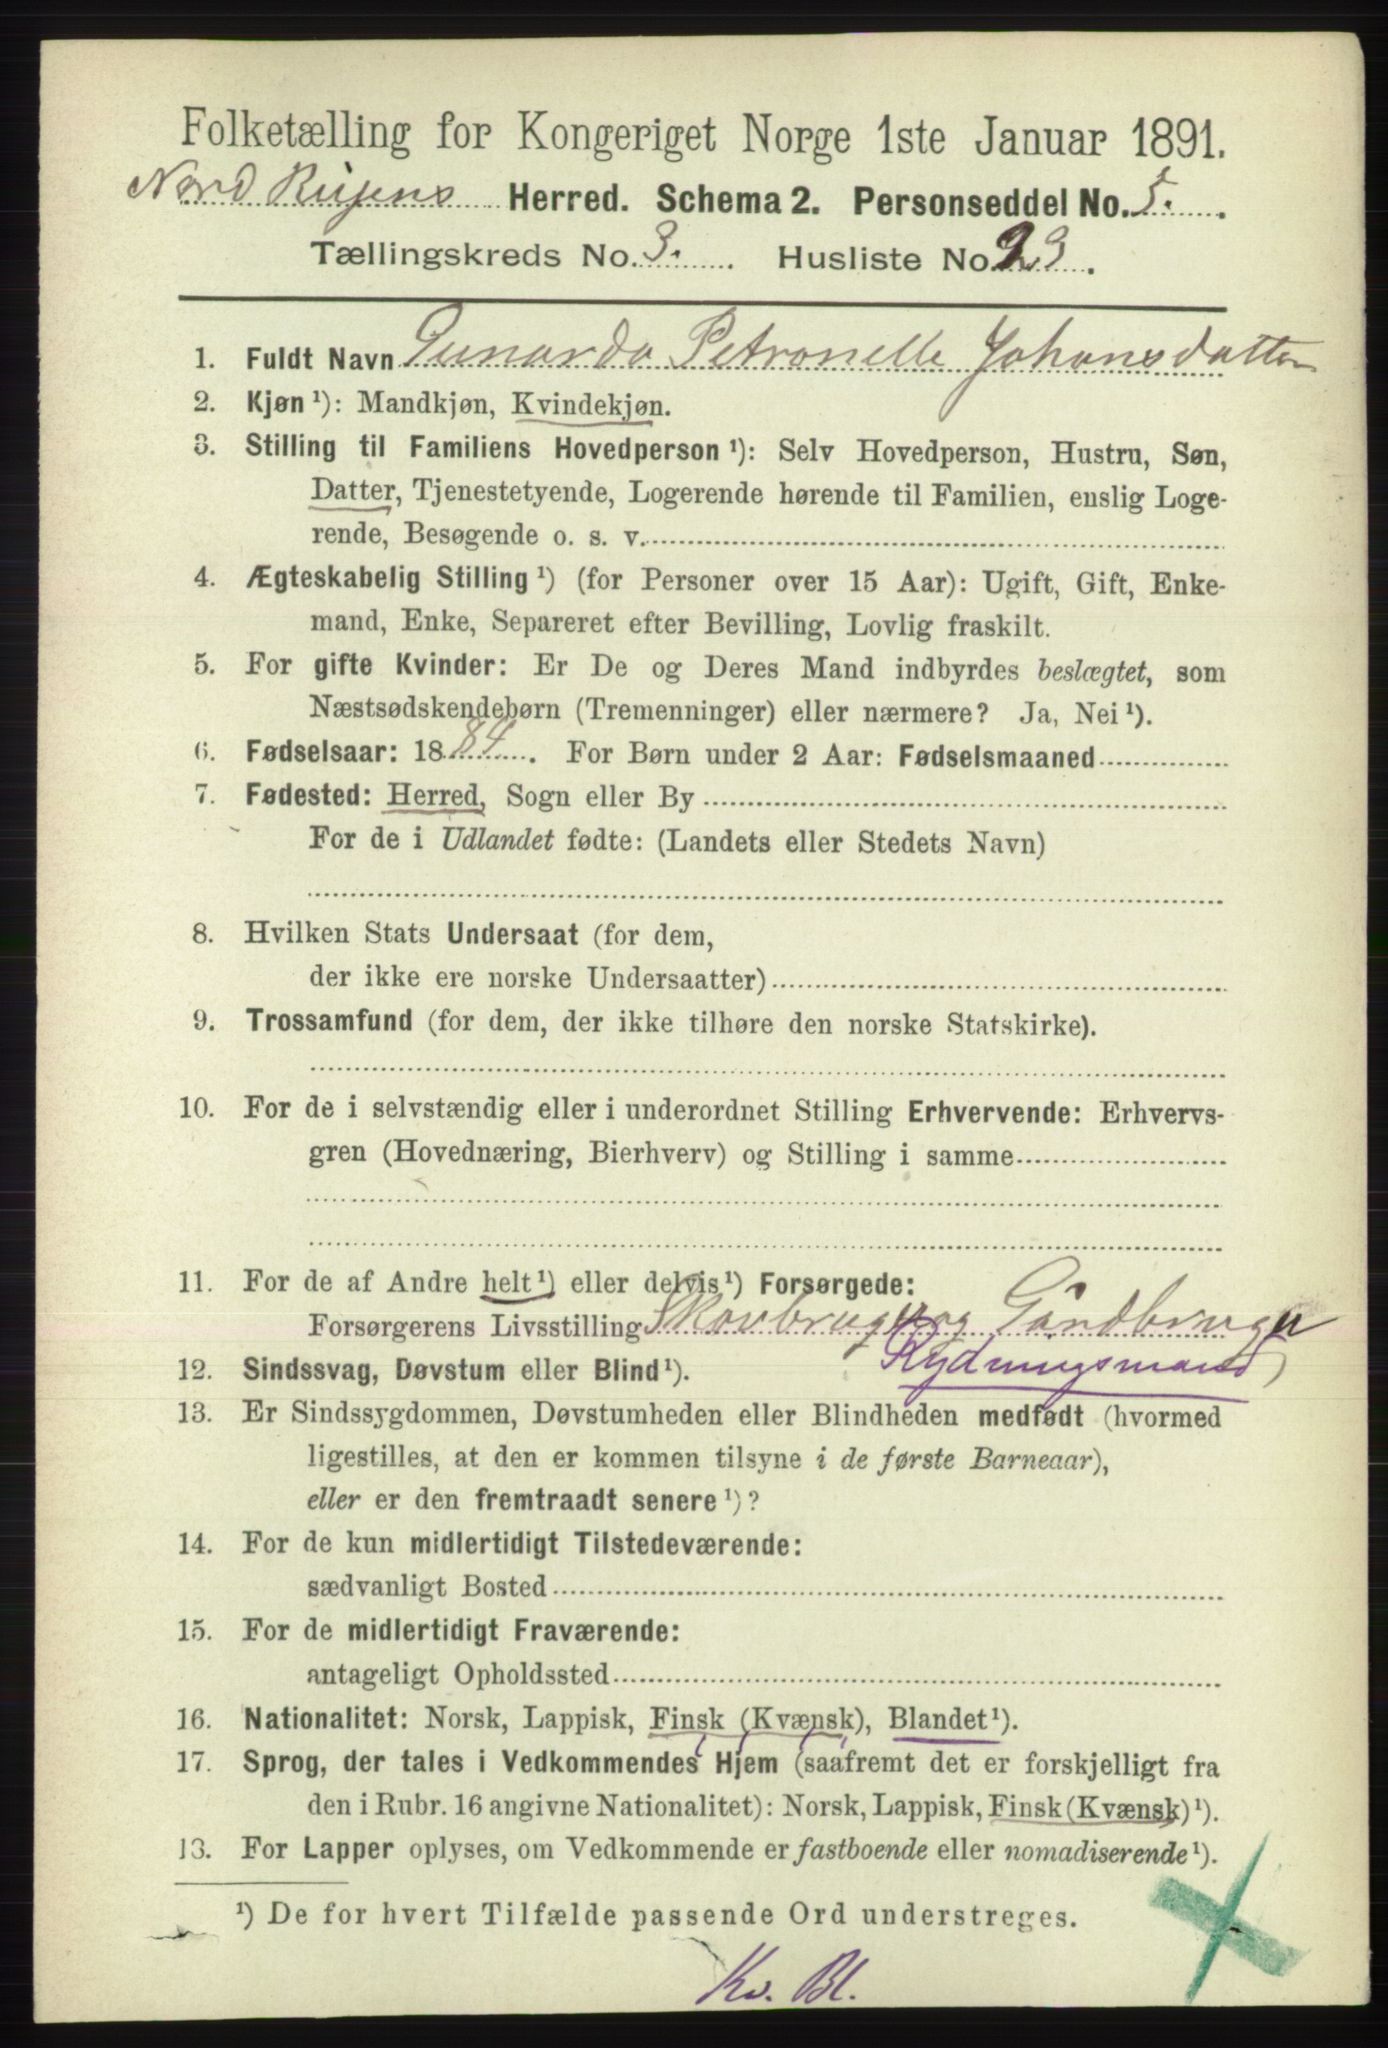 Folketælling for Kongeriget Norge 1ste Januar 1891.
Nord Reisens Herred. Schema 2. Personseddel No. 5.
Tællingskreds No. 3. Husliste No. 23.
1. Fuldt Navn Gunarda Petronelle Johansdatter
2. Kjøn ¹): Mandkjøn, Kvindekjøn.
3. Stilling til Familiens Hovedperson ¹): Selv Hovedperson, Hustru, Søn,
Datter, Tjenestetyende, Logerende hørende til Familien, enslig Loge-
rende, Besøgende o. s. v.
4. Ægteskabelig Stilling ¹) (for Personer over 15 Aar): Ugift, Gift, Enke-
mand, Enke, Separeret efter Bevilling, Lovlig fraskilt.
5. For gifte Kvinder: Er De og Deres Mand indbyrdes beslægtet, som
Næstsødskendebørn (Tremenninger) eller nærmere? Ja, Nei ¹).
6. Fødselsaar: 1884. For Børn under 2 Aar: Fødselsmaaned
7. Fødested: Herred, Sogn eller By
For de i Udlandet fødte: (Landets eller Stedets Navn)
8. Hvilken Stats Undersaat (for dem,
der ikke ere norske Undersaatter)
9. Trossamfund (for dem, der ikke tilhøre den norske Statskirke).
10. For de i selvstændig eller i underordnet Stilling Erhvervende: Erhvervs-
gren (Hovednæring, Bierhverv) og Stilling i samme
11. For de af Andre helt ¹) eller delvis ¹) Forsørgede:
Forsørgerens Livsstilling Skovbrug og Gårdbruger
Rydningsmand
12. Sindssvag, Døvstum eller Blind ¹).
13. Er Sindssygdommen, Døvstumheden eller Blindheden medfødt (hvormed
ligestilles, at den er kommen tilsyne i de første Barneaar),
eller er den fremtraadt senere ¹)?
14. For de kun midlertidigt Tilstedeværende:
sædvanligt Bosted
15. For de midlertidigt Fraværende:
antageligt Opholdssted
16. Nationalitet: Norsk, Lappisk, Finsk (Kvænsk), Blandet ¹).
17. Sprog, der tales i Vedkommendes Hjem (saafremt det er forskjelligt fra
den i Rubr. 16 angivne Nationalitet): Norsk, Lappisk, Finsk (Kvænsk) ¹).
13. For Lapper oplyses, om Vedkommende er fastboende eller nomadiserende ¹).
¹) De for hvert Tilfælde passende Ord understreges.
Kv. Bl.